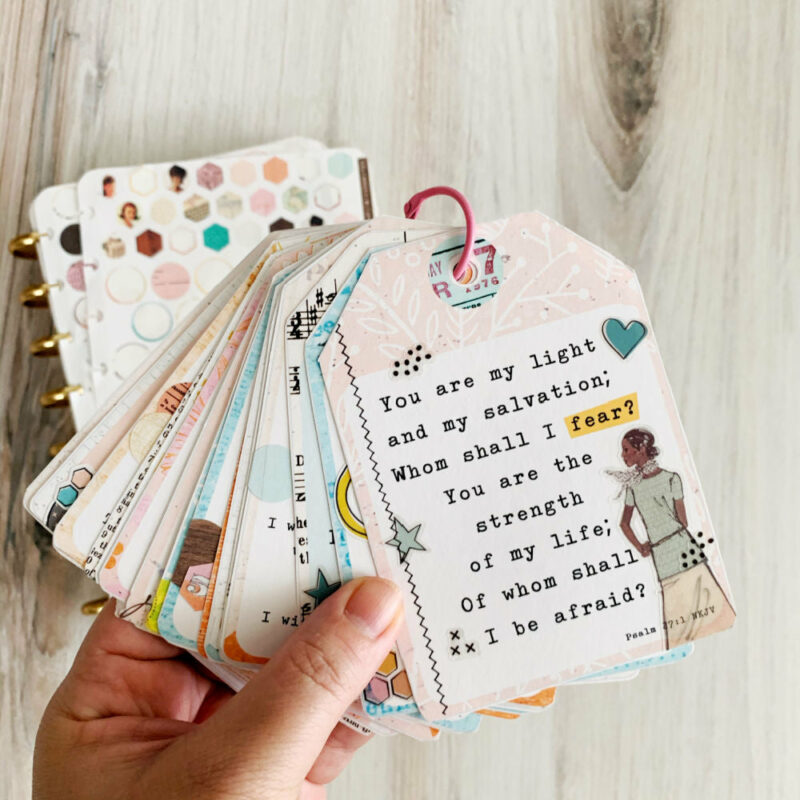 AY 07
R 1976
You are my light
and my salvation;
Whom shall I fear?
You are the
strength
of my life;
Of whom shall
I be afraid?
Psalm 27:1 NKJV
I wi